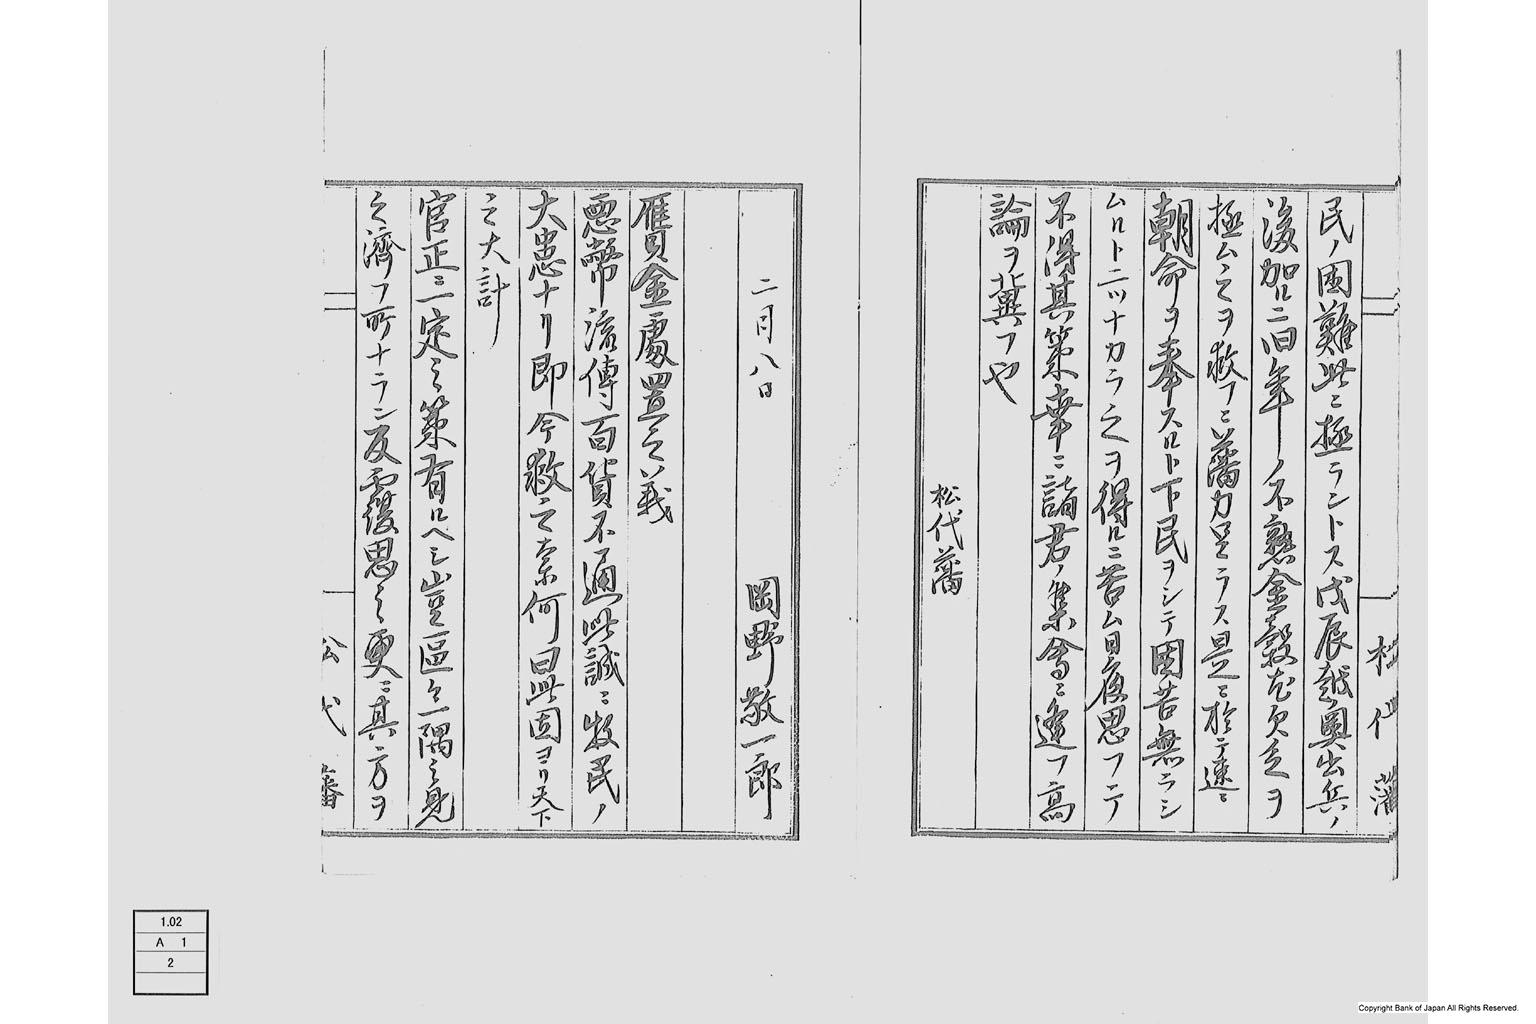 松代藩
民ノ困難此ニ極ラントス戊辰越奥出兵ノ
後加ルニ両年ノ不熟金穀尤欠乏ヲ
極ム之ヲ救フニ藩力足ラス是ニ於テ速ニ
朝命ヲ奉スルト下民ヲシテ困苦無ラシ
ムルト二ツナカラ之ヲ得ルニ苦ム日夜思フテ
不得其策幸ニ諸君ノ集會ニ逢フ高
論ヲ冀フや
松代藩
二月八日 岡野敬一郎
贋金處置之義
悪幣流傳百貨不通此誠ニ牧民ノ
大患ナリ即今救之奈何曰此固ヨリ天下
之大計
官正ニ一定之策有ルヘシ豈區々一隅之見
之濟フ所ナランヤ反覆思之更ニ其方ヲ
松代藩
1.02
A 1
2
Copyright Bank of Japan All Rights Reserved.